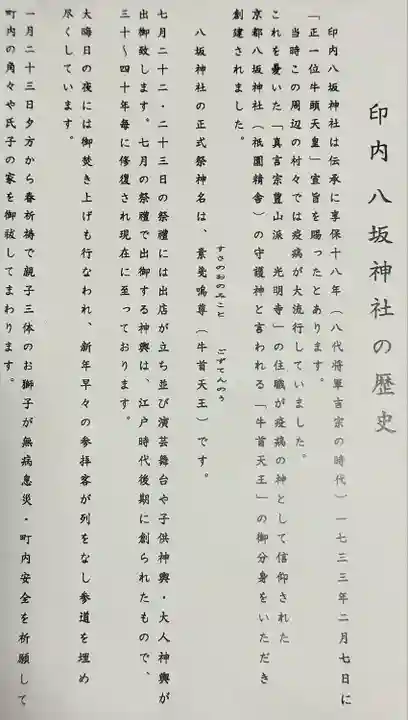 印内八坂神社の歴史
印内八坂神社は伝承に享保十八年（八代将軍吉宗の時代）一七三三年二月七日に
「正一位牛頭天皇」宣旨を賜ったとあります。
当時この周辺の村々では疫病が大流行していました。
これを憂いた「真言宗豊山派　光明寺」の住職が疫病の神として信仰された
京都八坂神社（祇園精舎）の守護神と言われる「牛首天王」の御分身をいただき
創建されました。
すさのおのみこと　ごずてんのう
八坂神社の正式祭神名は、素戔嗚尊（牛首天王）です。
七月二十二・二十三日の祭禮には出店が立ち並び演芸舞台や子供神輿・大人神輿が
出御致します。七月の祭禮で出御する神輿は、江戸時代後期に創られたもので、
三十～四十年毎に修復され現在に至っております。
大晦日の夜には御焚き上げも行なわれ、新年早々の参拝客が列をなし参道を埋め
尽くしています。
一月二十三日夕方から春祈祷で親子三体のお獅子が無病息災・町内安全を祈願して
町内の角々や氏子の家を御祓してまわります。